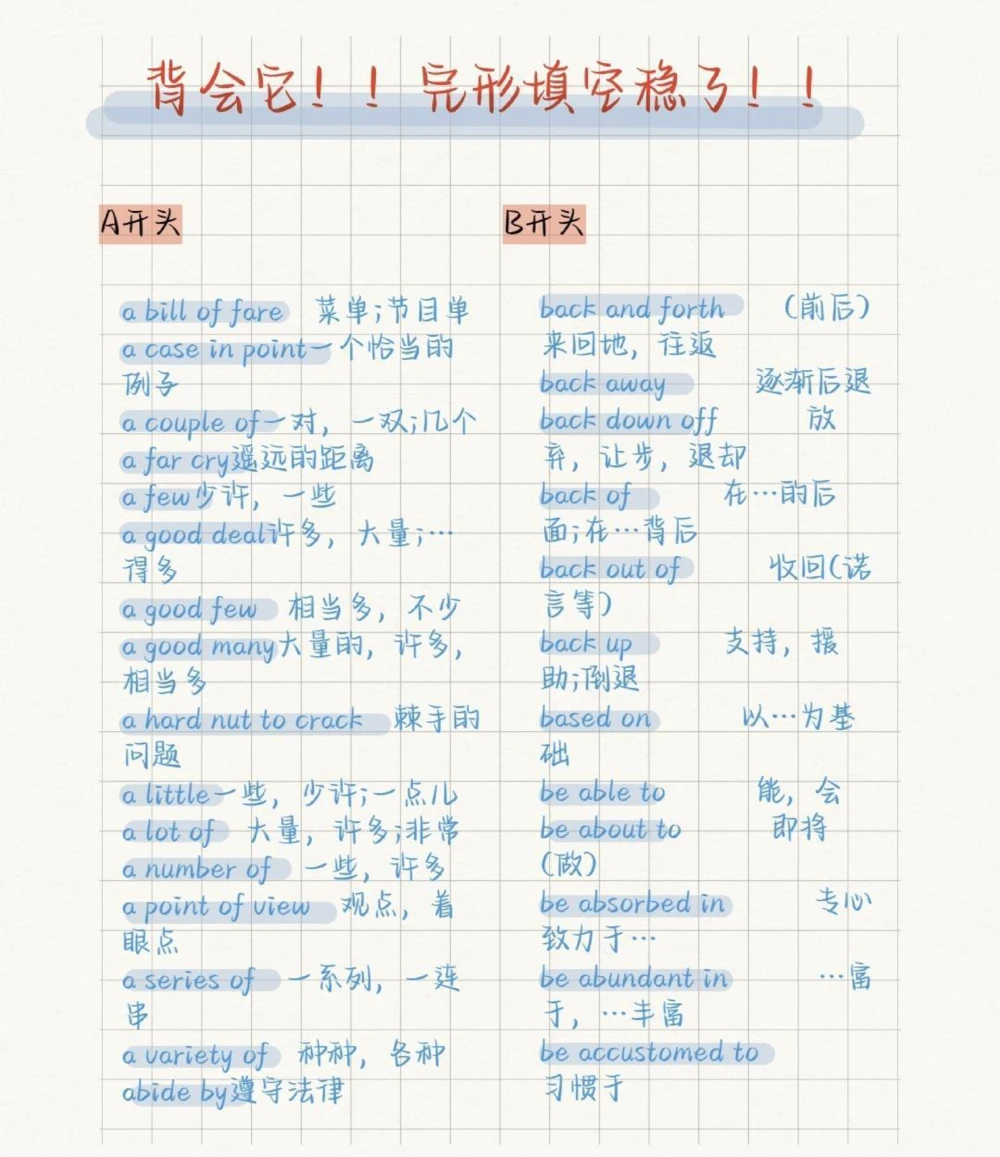 背会它！！完形填空稳了！！
A开头
a bill of fare 菜单;节目单
a case in point一个恰当的
例子
a couple of一对，一双;几个
a far cry遥远的距离
a few少许，一些
a good deal许多，大量;…
得多
a good few 相当多，不少
a good many大量的，许多，
相当多
a hard nut to crack 棘手的
问题
a little一些，少许;一点儿
a lot of 大量，许多;非常
a number of 一些，许多
a point of view 观点，着
眼点
a series of 一系列，一连
串
a variety of 种种，各种
abide by遵守法律
B开头
back and forth （前后）
来回地，往返
back away 逐渐后退
back down off 放
弃，让步，退却
back of 在…的后
面;在…背后
back out of 收回(诺
言等)
back up 支持，援
助;倒退
based on 以…为基
础
be able to 能，会
be about to 即将
(做)
be absorbed in 专心
致力于…
be abundant in …富
于，…丰富
be accustomed to
习惯于